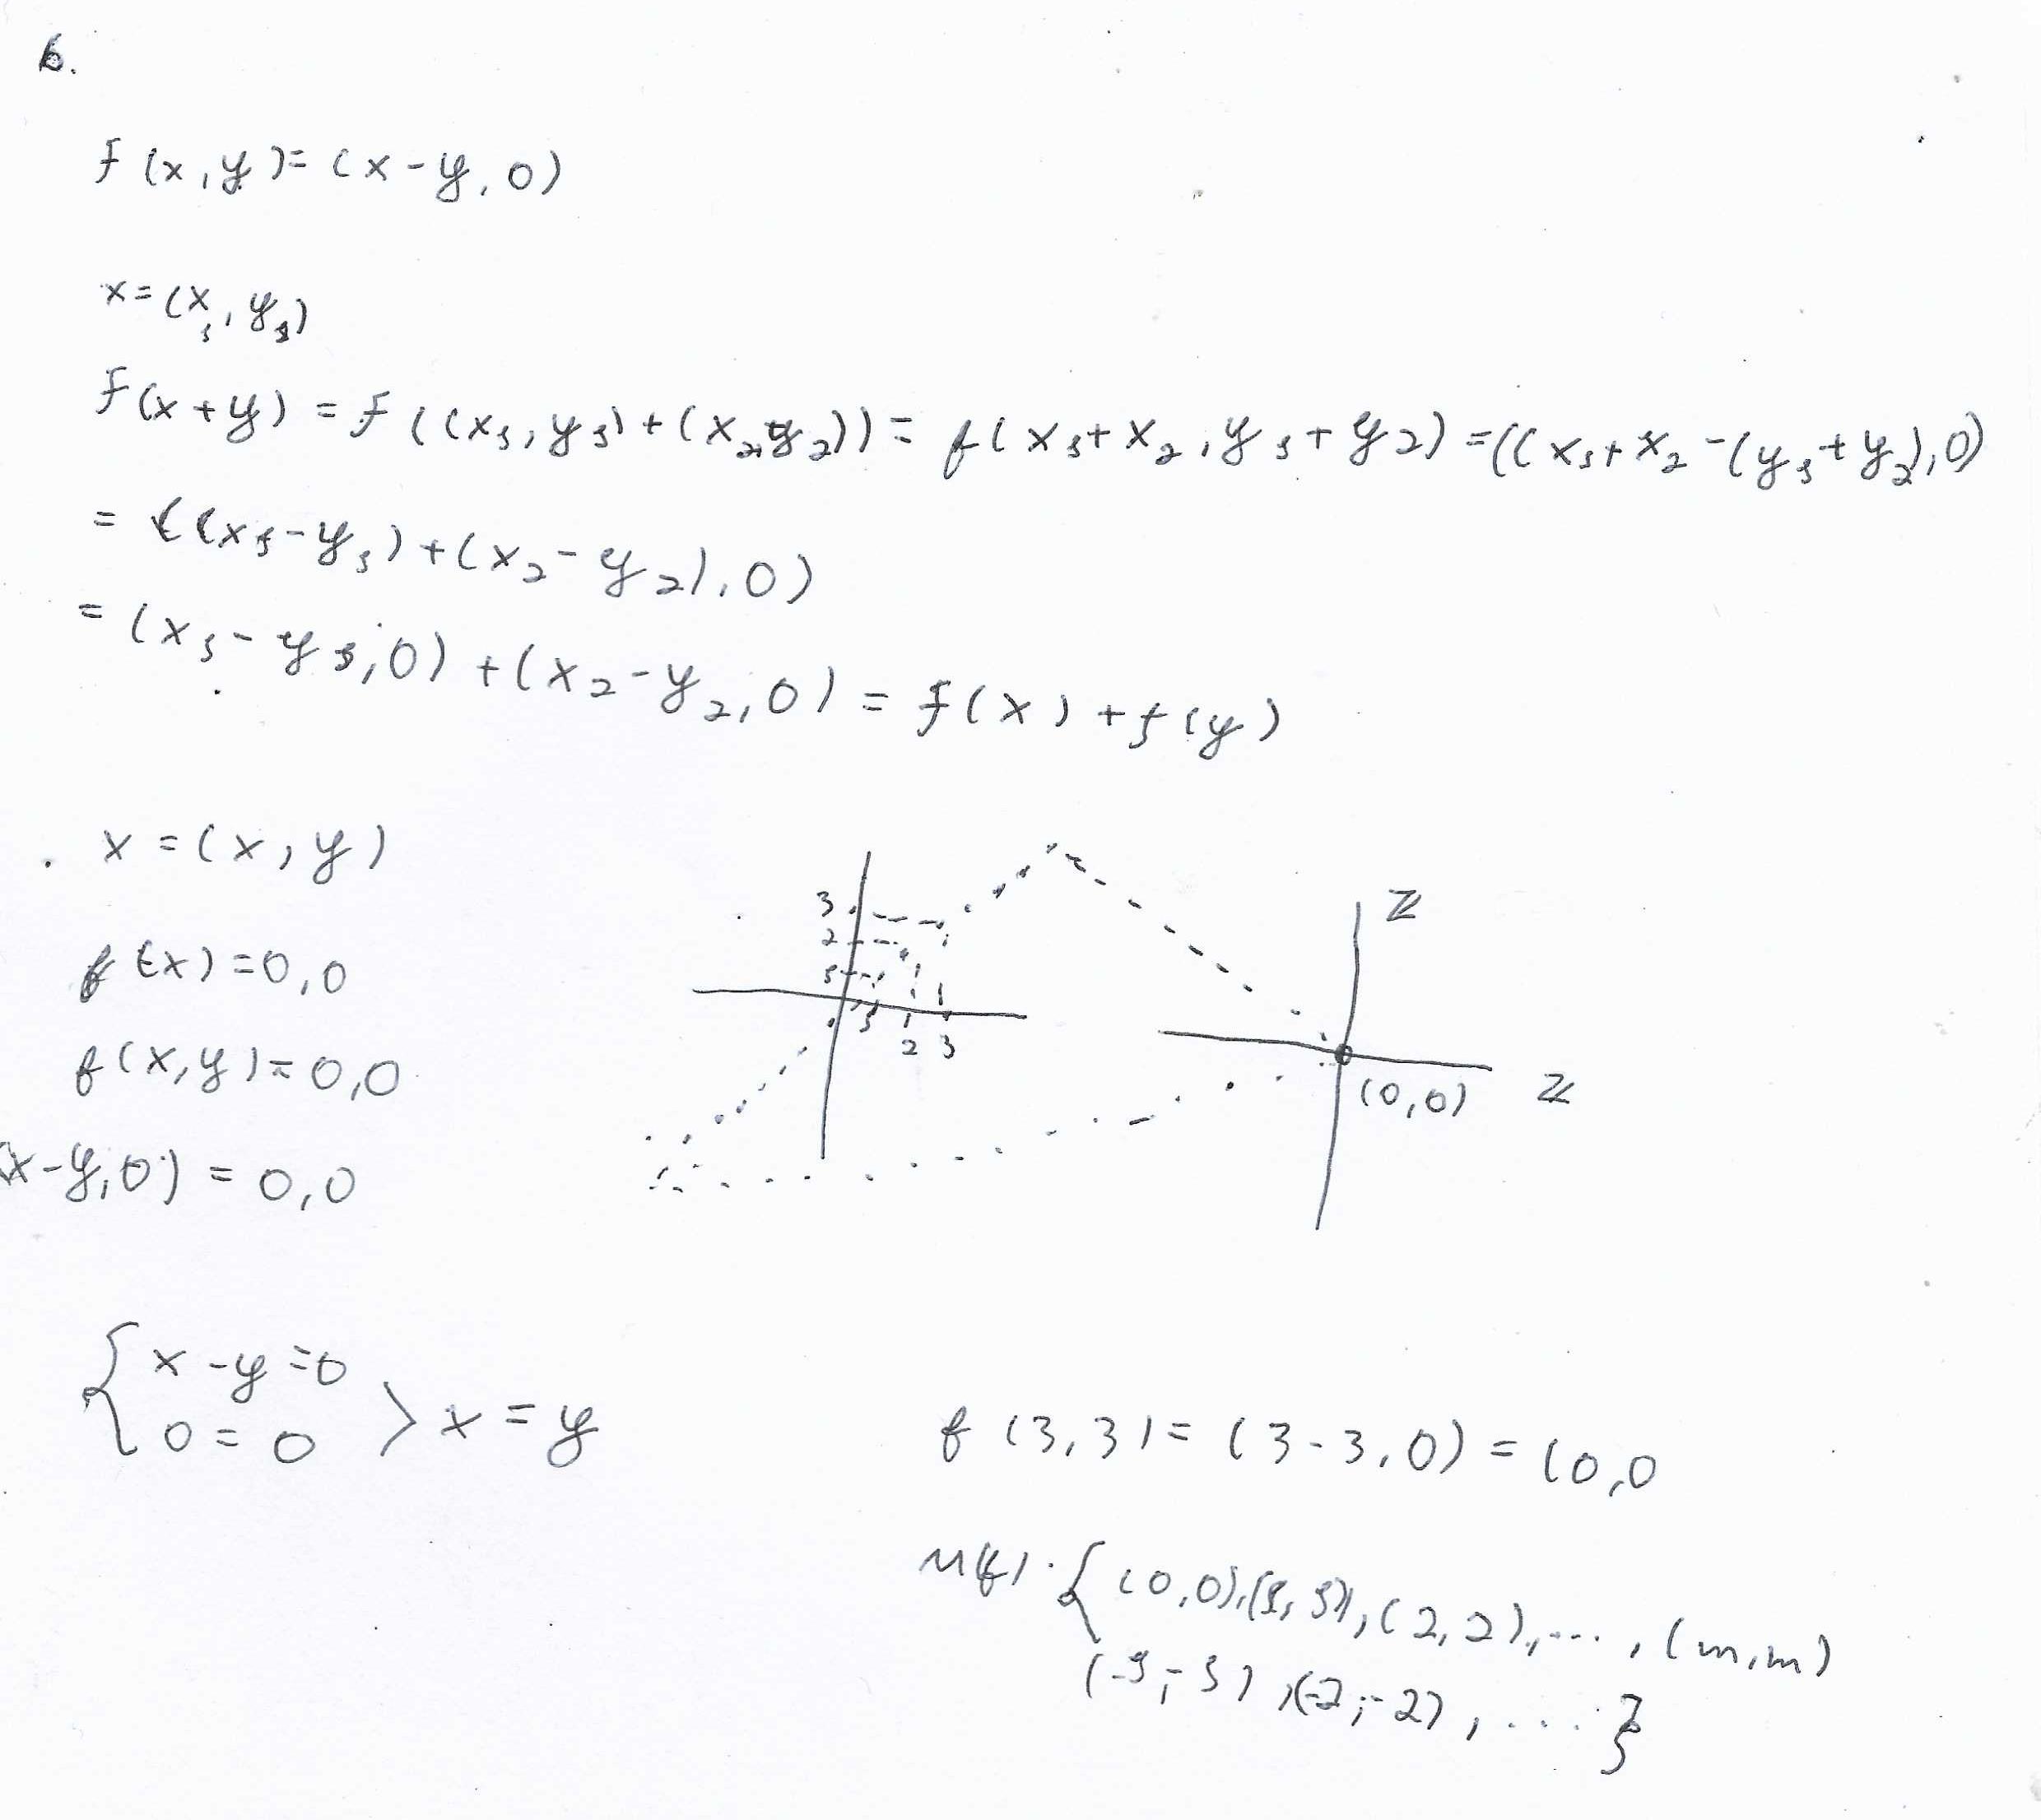 6.
f(x,y)=(x-y,0)
x=(x₁,y₁)
f(x+y)=f((x₁,y₁)+(x₂,y₂))=f(x₁+x₂,y₁+y₂)=((x₁+x₂-(y₁+y₂),0)
=((x₁-y₁)+(x₂-y₂),0)
=(x₁-y₁,0)+(x₂-y₂,0)=f(x)+f(y)
x=(x,y)
f(x)=0,0
f(x,y)=0,0
x-y,0)=0,0
3
2
1
1
2 3
ℤ
ℤ
(0,0)
{x-y=0
0=0
>x=y
f(3,3)=(3-3,0)=(0,0
N(f):{(0,0),(1,1),(2,2),...,(m,m)
(-1,-1),(-2,-2),....}